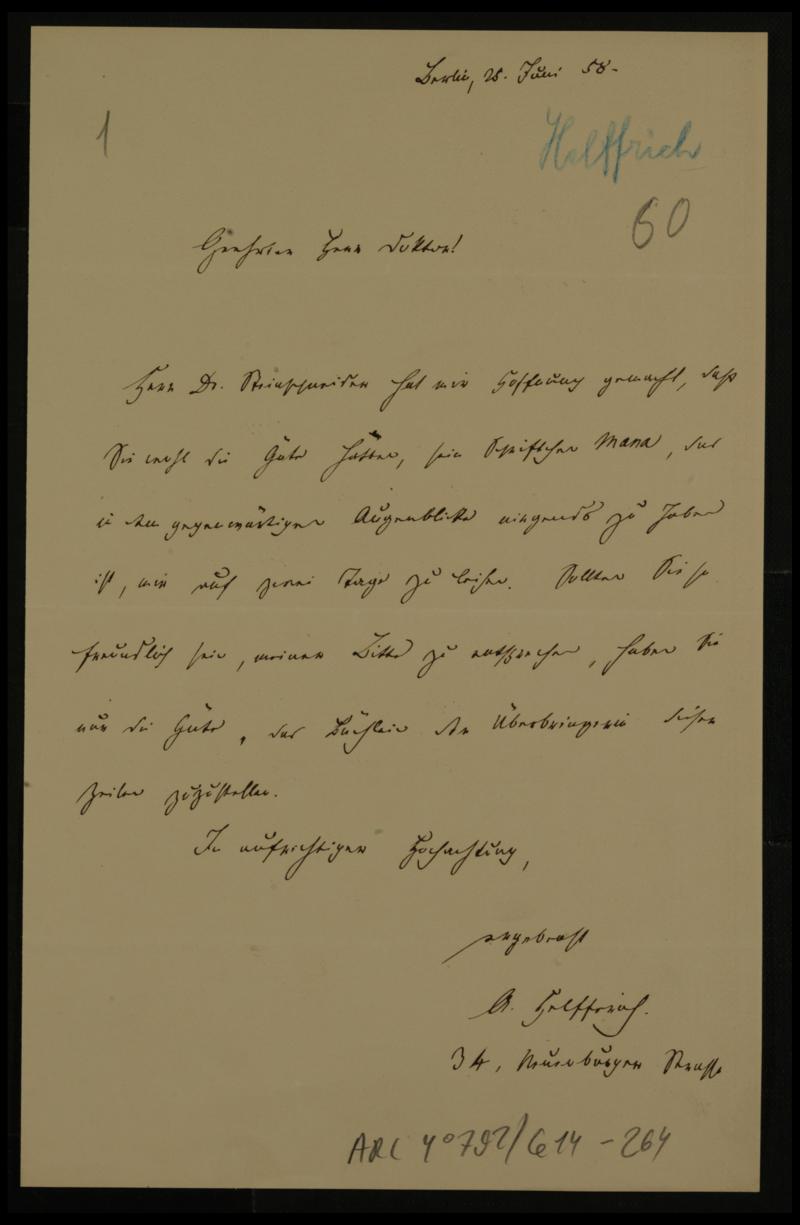 Berlin, 25. Juni 58.
1
Helffrich
60
Geehrter Herr Doktor!
Herr Dr. Steinschneider hat mir Hoffnung gemacht, daß
Sie wohl die Güte hätten, sein Schriftchen Mana, das
in dem gegenwärtigen Augenblicke nirgends zu haben
ist, mir auf zwei Tage zu leihen. Sollten Sie so
freundlich sein, meiner Bitte zu entsprechen, haben Sie
nur die Güte, das Büchlein der Überbringerin dieser
Zeilen zuzustellen.
In aufrichtiger Hochachtung,
ergebenst
A. Helfferich.
34, Neuenburger Strasse
ARC 4° 792/G14-264